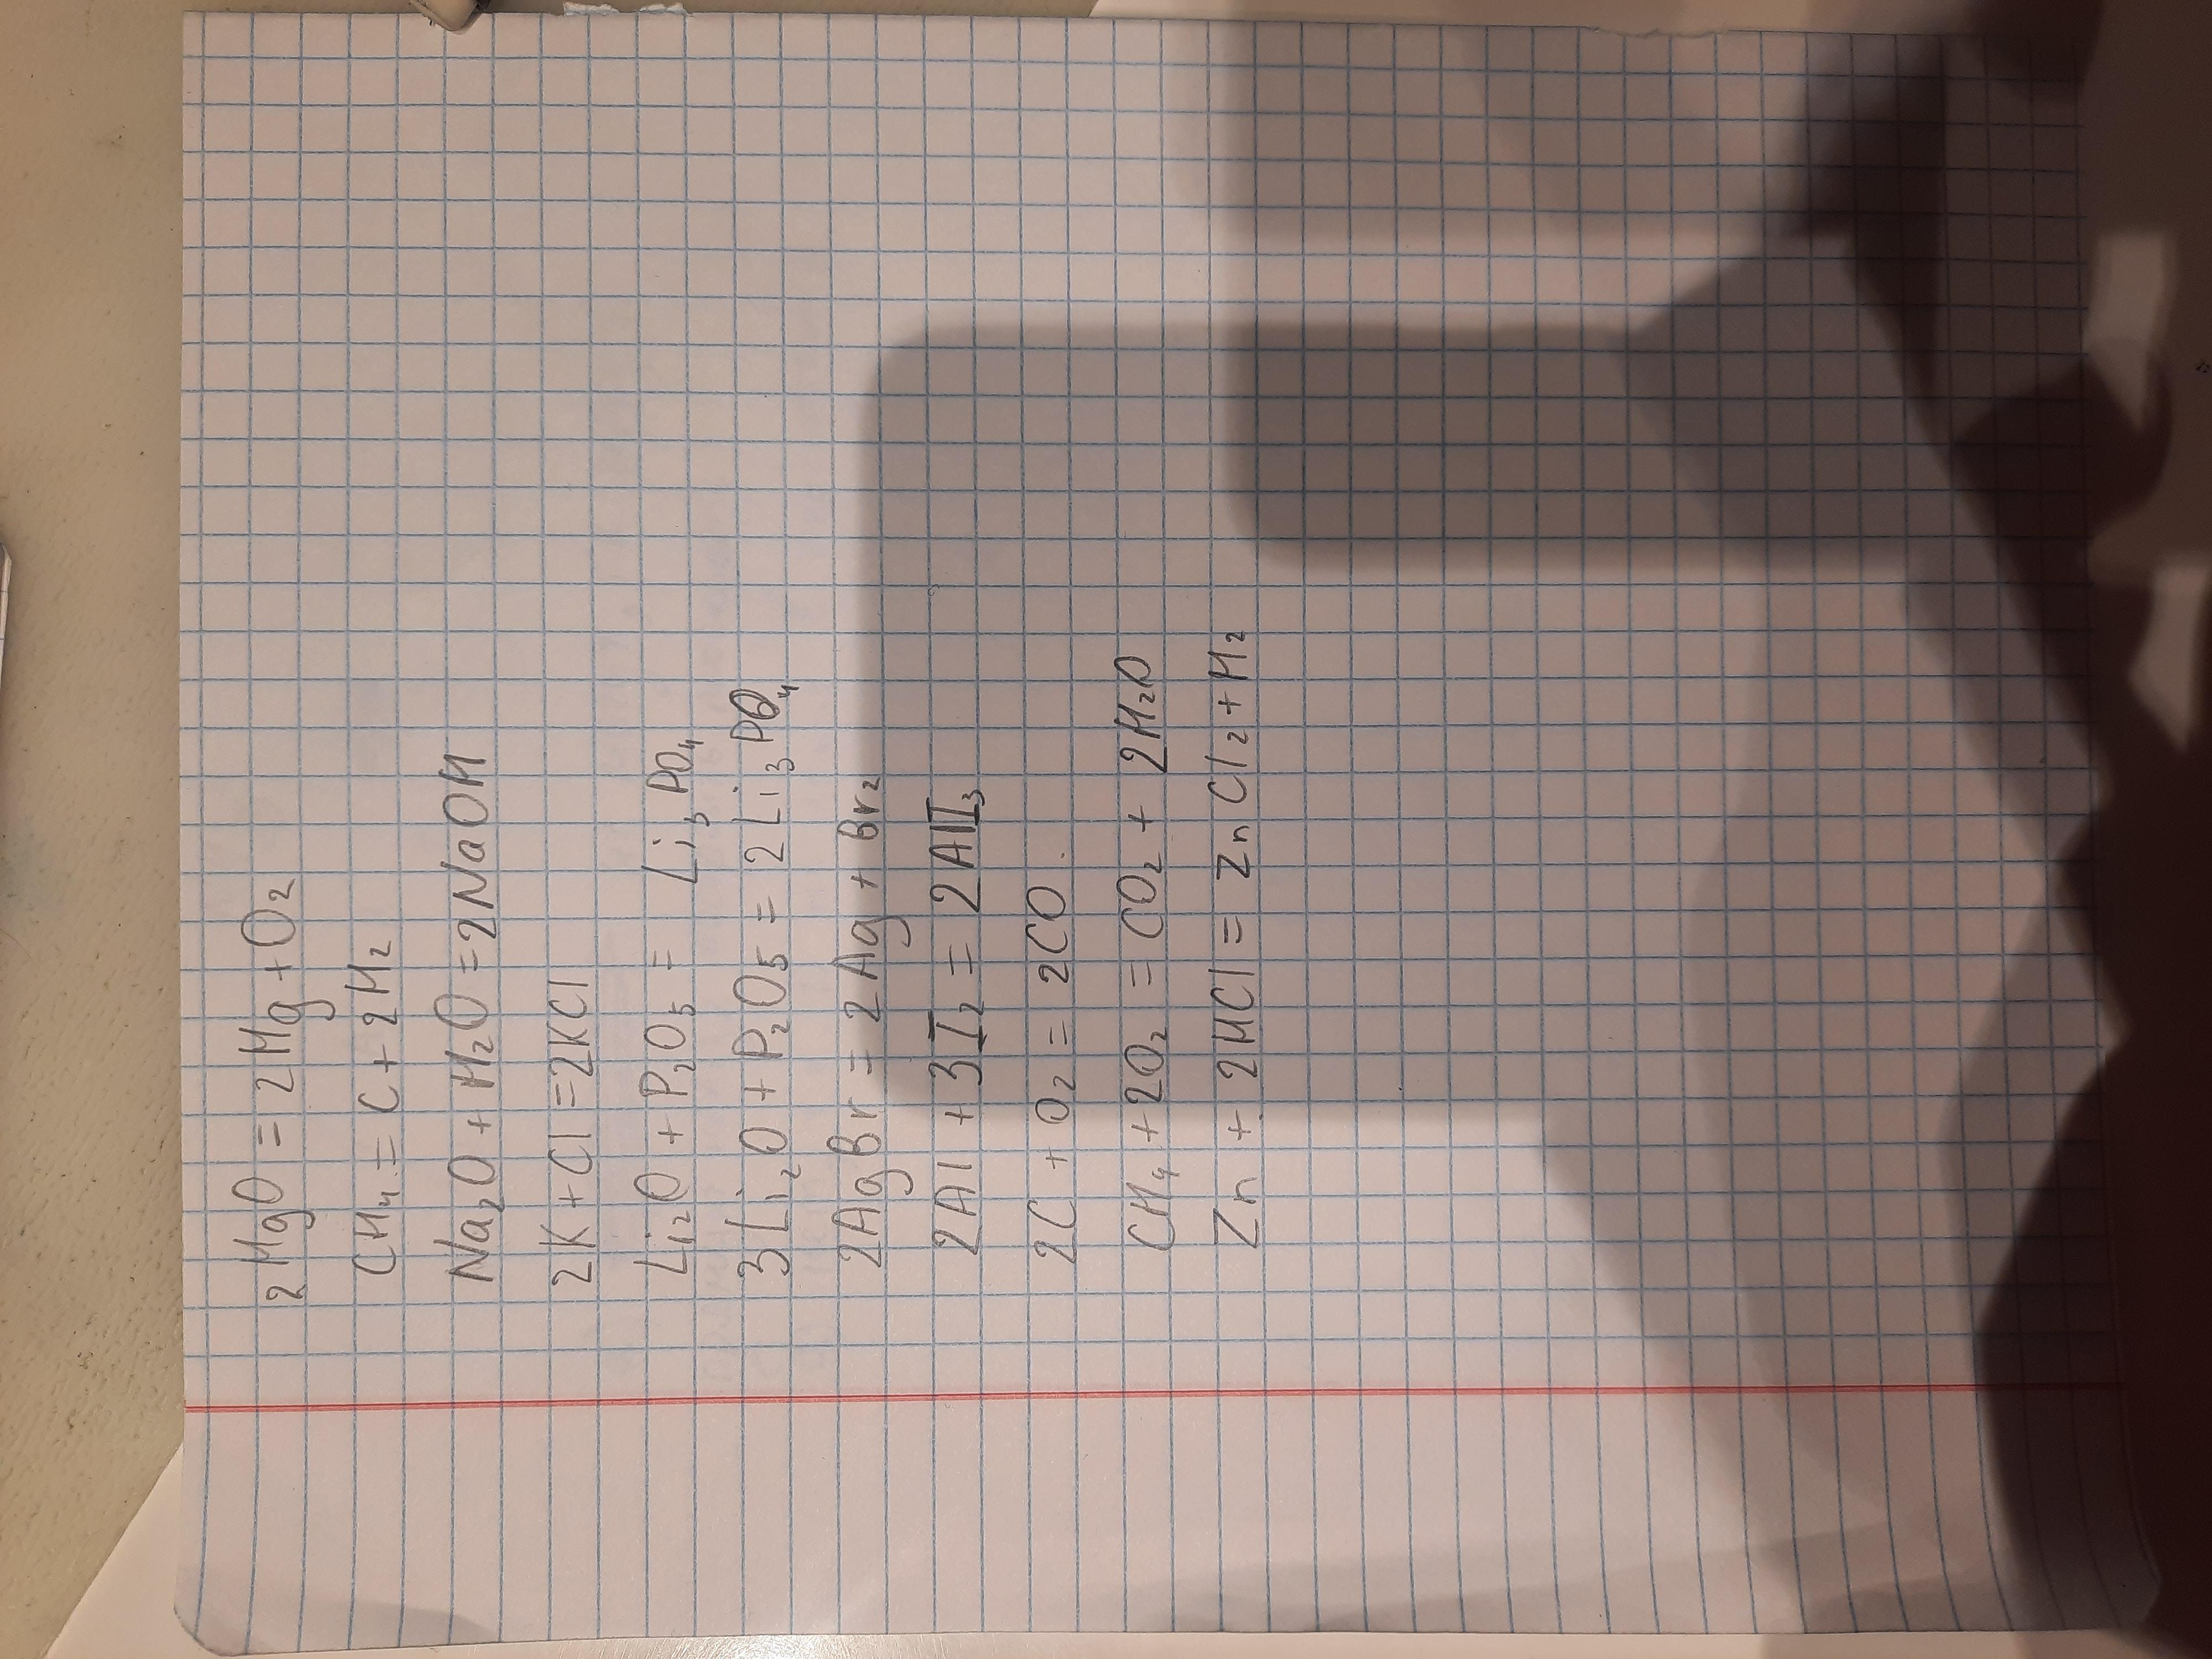 2MgO = 2Mg + O₂
CH₄ = C + 2H₂
Na₂O + H₂O = 2NaOH
2K + Cl = 2KCl
Li₂O + P₂O₅ = Li₃PO₄
3Li₂O + P₂O₅ = 2Li₃PO₄
2AgBr = 2Ag + Br₂
2Al + 3I₂ = 2AlI₃
2C + O₂ = 2CO
CH₄ + 2O₂ = CO₂ + 2H₂O
Zn + 2HCl = ZnCl₂ + H₂